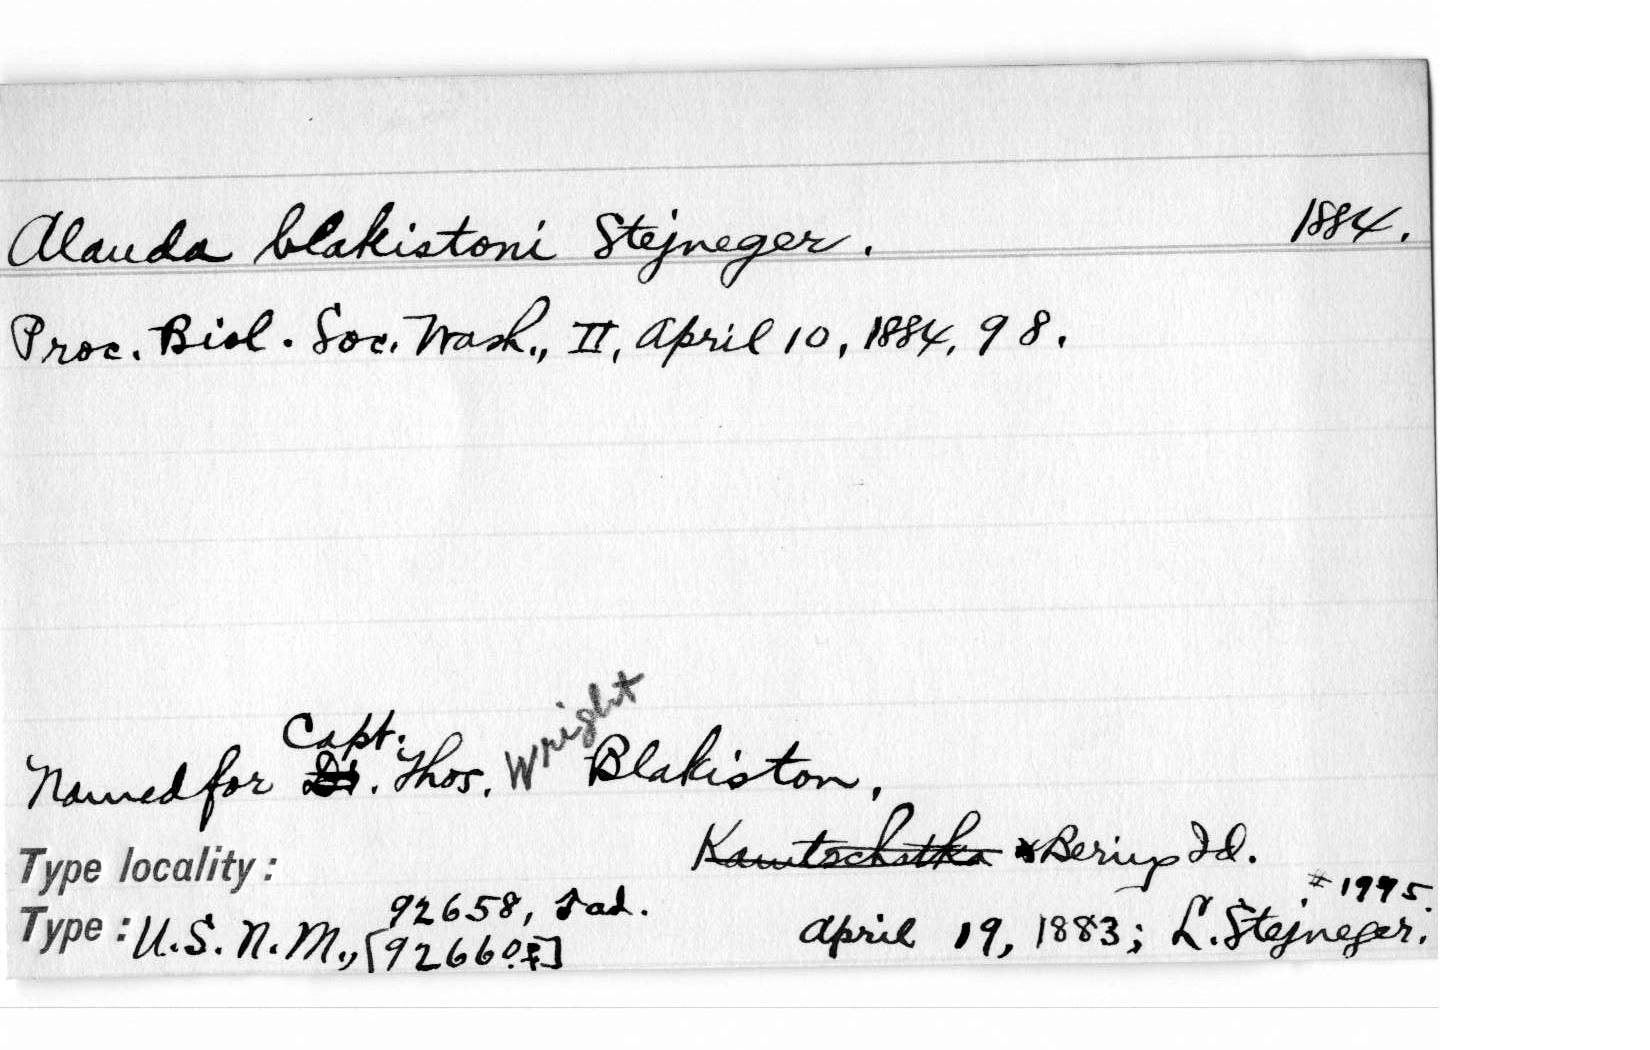 Alauda blakistoni Stejneger. 1884.
Proc. Biol. Soc. Wash., II, April 10, 1884, 98.
Capt. Wright
Named for Dr. Thos. Blakiston.
Kamtschatka Bering Id.
Type locality:
92658, ad. #1995.
Type: U.S.N.M., [92660♀] April 19, 1883; L. Stejneger.